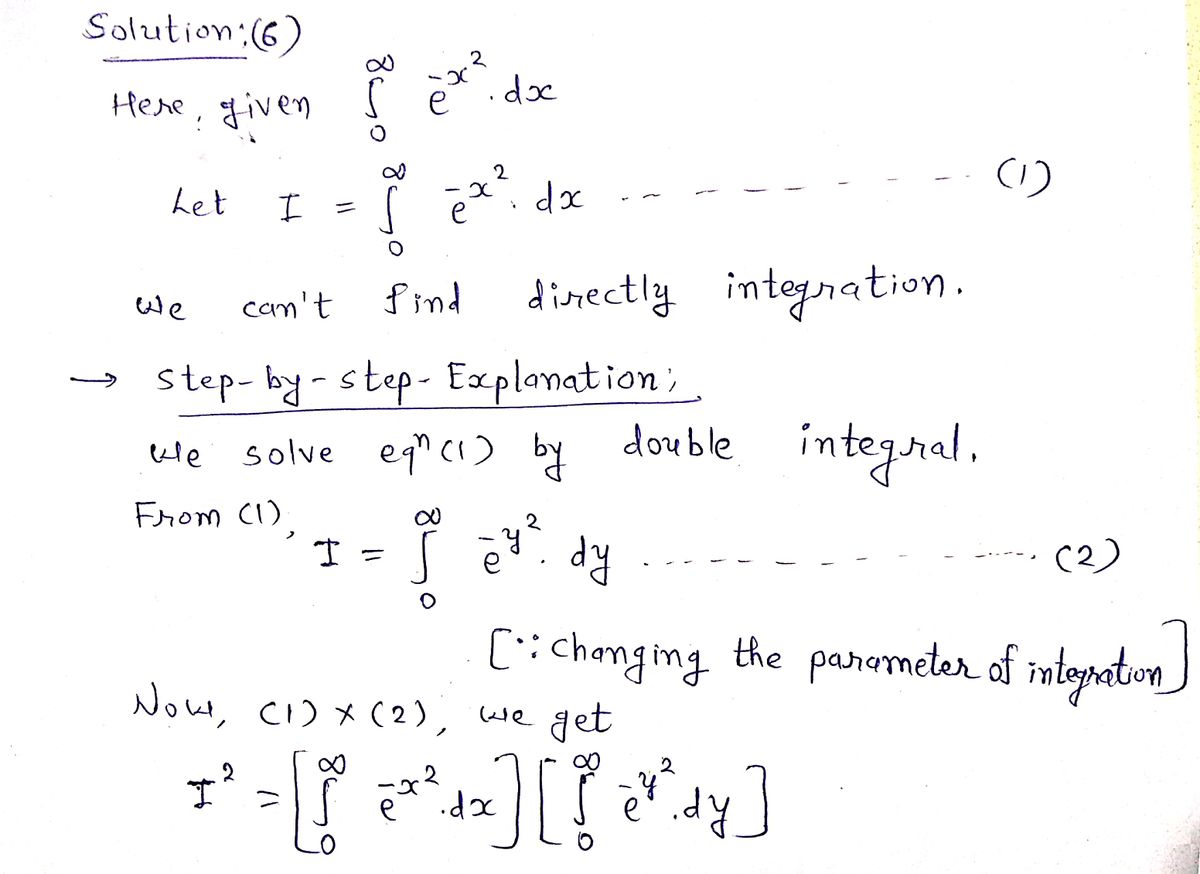 Solution:(6)
Here, given ∫₀^∞ e^{-x²}.dx
Let I = ∫₀^∞ e^{-x²}.dx ---------- (1)
We can't find directly integration.
→ Step-by-step-Explanation;
We solve eqⁿ(1) by double integral.
From (1),
I = ∫₀^∞ e^{-y²}.dy ---------- (2)
[∵ Changing the parameter of integration]
Now, (1) × (2), we get
I² = [∫₀^∞ e^{-x²}.dx][∫₀^∞ e^{-y²}.dy]